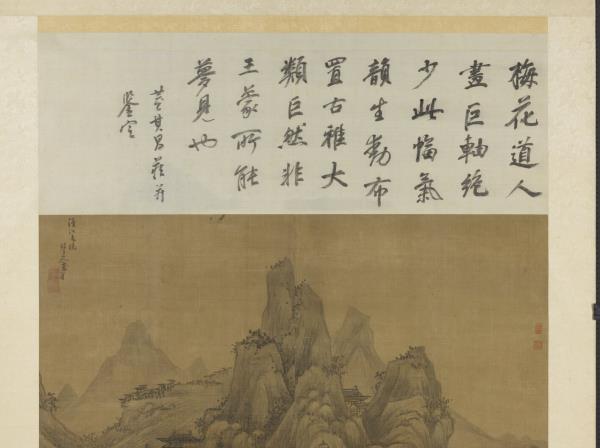 梅花道人
畫巨軸絶
少此幅氣
韻生動布
置古雅大
類巨然非
王蒙所能
夢見也
董其昌
鑒定